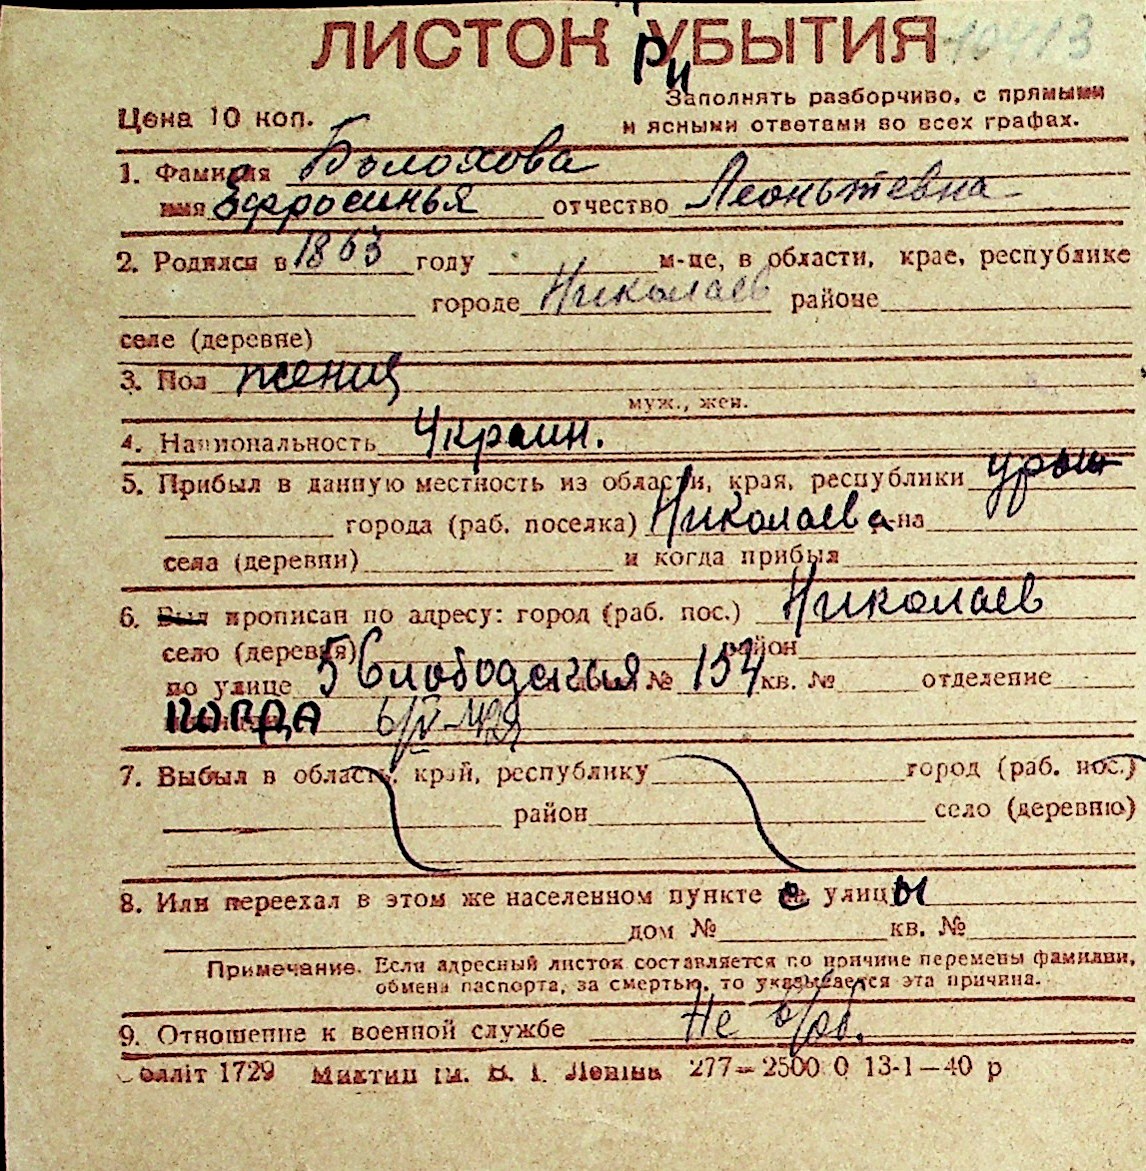 ЛИСТОК УБЫТИЯ 10413
при
Цена 10 коп.
Заполнять разборчиво, с прямыми
и ясными ответами во всех графах.
1. Фамилия Болохова
имя Эфросинья отчество Леонтьевна
2. Родился в 1863 году м-це, в области, крае, республике
городе Николаев районе
селе (деревне)
3. Пол женщ
муж., жен.
4. Национальность Украин.
5. Прибыл в данную местность из области, края, республики
города (раб. поселка) Николаева р-на
села (деревни) и когда прибыл
6. Был прописан по адресу: город (раб. пос.) Николаев
село (деревня) район
по улице 5 Слободская дом № 154 кв. № отделение
когда
7. Выбыл в область, край, республику город (раб. пос.)
район село (деревню)
8. Или переехал в этом же населенном пункте с улицы
дом № кв. №
Примечание. Если адресный листок составляется по причине перемены фамилии,
обмена паспорта, за смертью, то указывается эта причина.
9. Отношение к военной службе Не в/об.
Облліт 1729 Миктип ім. В. І. Леніна 277—2500 0 13-1—40 р